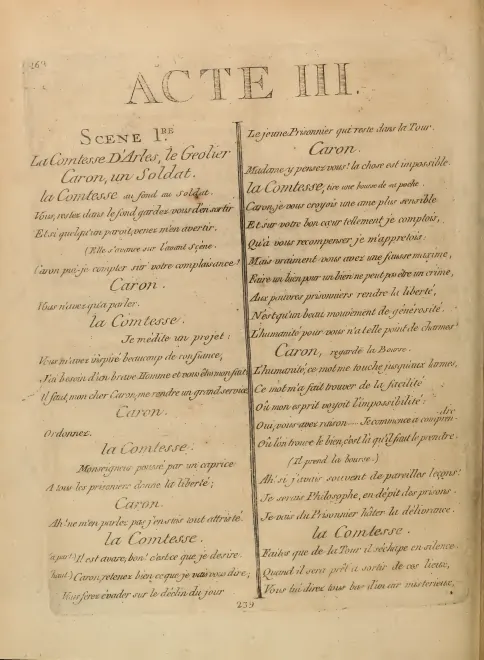 ACTE III.
SCENE 1.RE
La Comtesse D'Arles, le Geolier
Caron, un Soldat.
la Comtesse au fond au Soldat.
Vous, restez dans le fond gardez vous d'en sortir
Et si quelqu'un paroit, venez m'en avertir.
(Elle s'avance sur l'avant Scène.
Caron puis-je compter sur votre complaisance?
Caron.
Vous n'avez qu'a parler.
la Comtesse.
Je médite un projet;
Vous m'avez inspiré beaucoup de confiance,
J'ai besoin d'un brave Homme et vous être mon fait
Il faut, mon cher Caron, me rendre un grand service
Caron.
Ordonnez.
la Comtesse.
Monseigneur poussé par un caprice
A tous les prisoniers donne la liberté;
Caron.
Ah! ne m'en parlez pas j'en suis tout attristé.
la Comtesse.
(a part) Il est avare, bon! c'est ce que je desire.
(haut) Caron, retenez bien ce que je vais vous dire;
Vous ferez évader sur le déclin du jour
Le jeune Prisonnier qui reste dans la Tour.
Caron.
Madame y pensez vous! la chose est impossible.
la Comtesse, tire une bourse de sa poche.
Caron, je vous croyois une ame plus sensible
Et sur votre bon cœur tellement je comptois,
Qu'à vous recompenser je m'appretois.
Mais vraiment vous avez une fausse maxime,
Faire un bien pour un bien ne peut pas être un crime,
Aux pauvres prisonniers rendre la liberté,
N'est qu'un beau mouvement de générosité.
L'humanité pour vous n'a telle point de charmes?
Caron, regarde la Bourse.
L'humanité, ce mot me touche jusqu'aux larmes,
Ce mot m'a fait trouver de la facilité
Où mon esprit voyoit l'impossibilité;
Oui, vous avez raison.... Je commence a compren-
dre
Où l'on trouve le bien, c'est là qu'il faut le prendre.
(Il prend la bourse.)
Ah! si j'avais souvent de pareilles leçons!
Je serais Philosophe, en dépit des prisons.
Je vais du Prisonnier hâter la délivrance.
la Comtesse.
Faites que de la Tour il s'échape en silence.
Quand il sera prêt a sortir de ces lieux,
Vous lui direz tous bas d'un air misterieux,
239